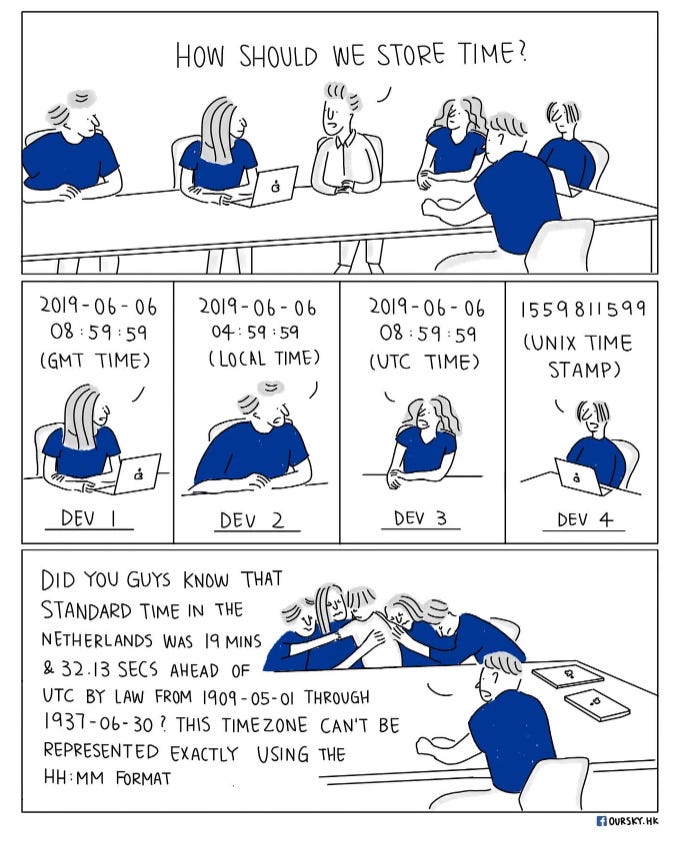 HOW SHOULD WE STORE TIME?
2019-06-06
08:59:59
(GMT TIME)
DEV 1
2019-06-06
04:59:59
(LOCAL TIME)
DEV 2
2019-06-06
08:59:59
(UTC TIME)
DEV 3
1559811599
(UNIX TIME
STAMP)
DEV 4
DID YOU GUYS KNOW THAT
STANDARD TIME IN THE
NETHERLANDS WAS 19 MINS
& 32.13 SECS AHEAD OF
UTC BY LAW FROM 1909-05-01 THROUGH
1937-06-30? THIS TIMEZONE CAN'T BE
REPRESENTED EXACTLY USING THE
HH:MM FORMAT
OURSKY.HK